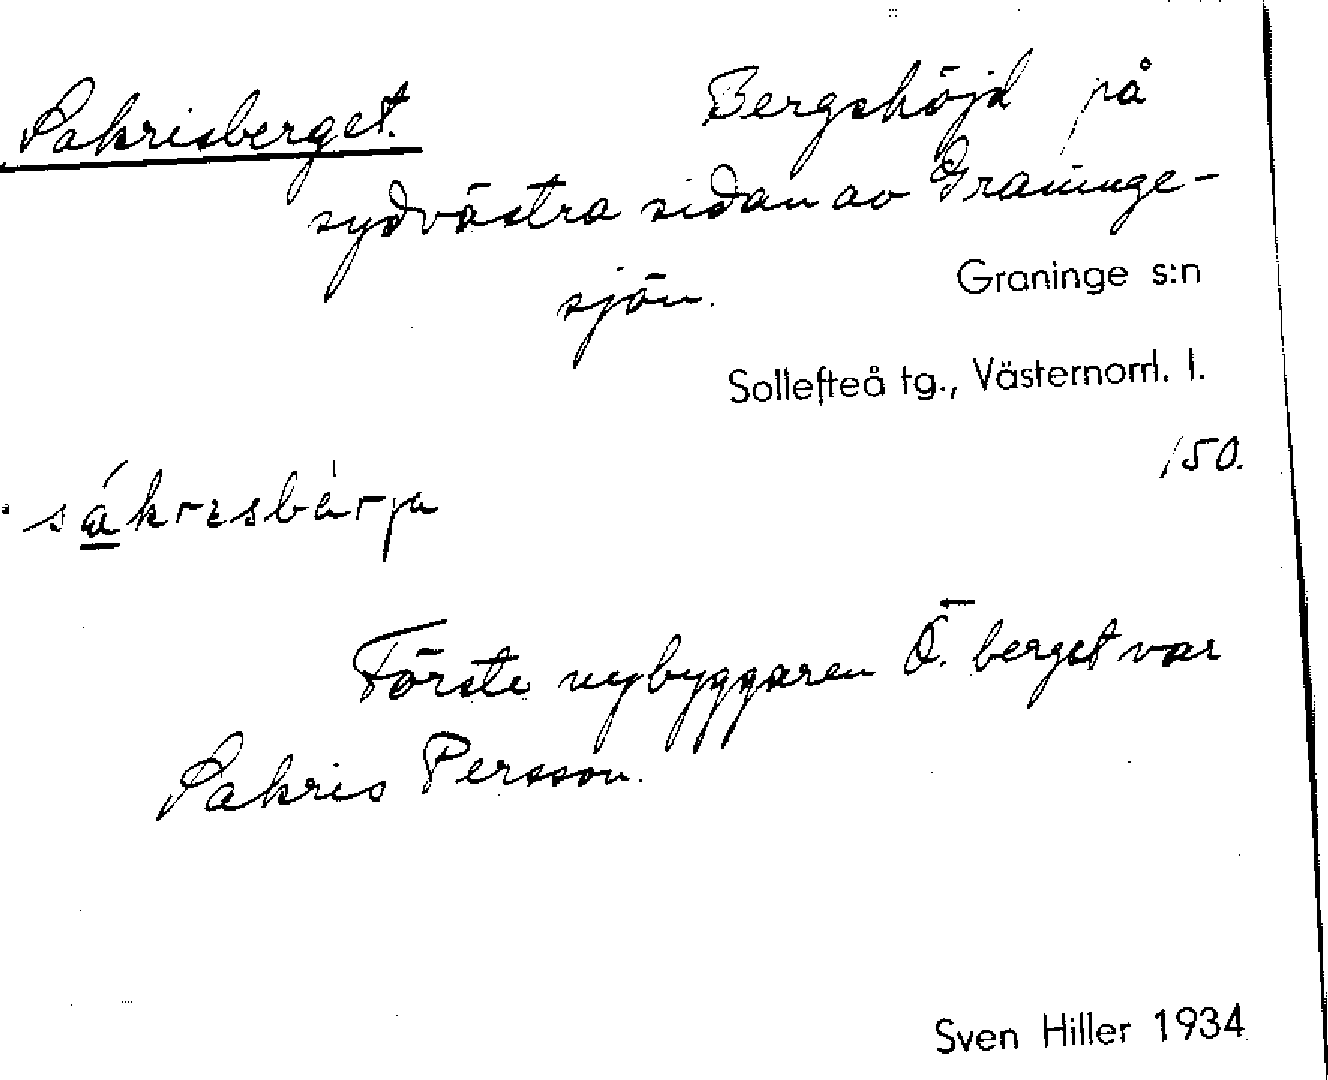 Sakrisberget.
Bergshöjd på
sydvästra sidan av Graninge-
sjön.
Graninge s:n
Sollefteå tg., Västernorrl. l.
150.
sákrɪsbàrja
Förste nybyggaren Ö. berget var
Sakris Persson.
Sven Hiller 1934